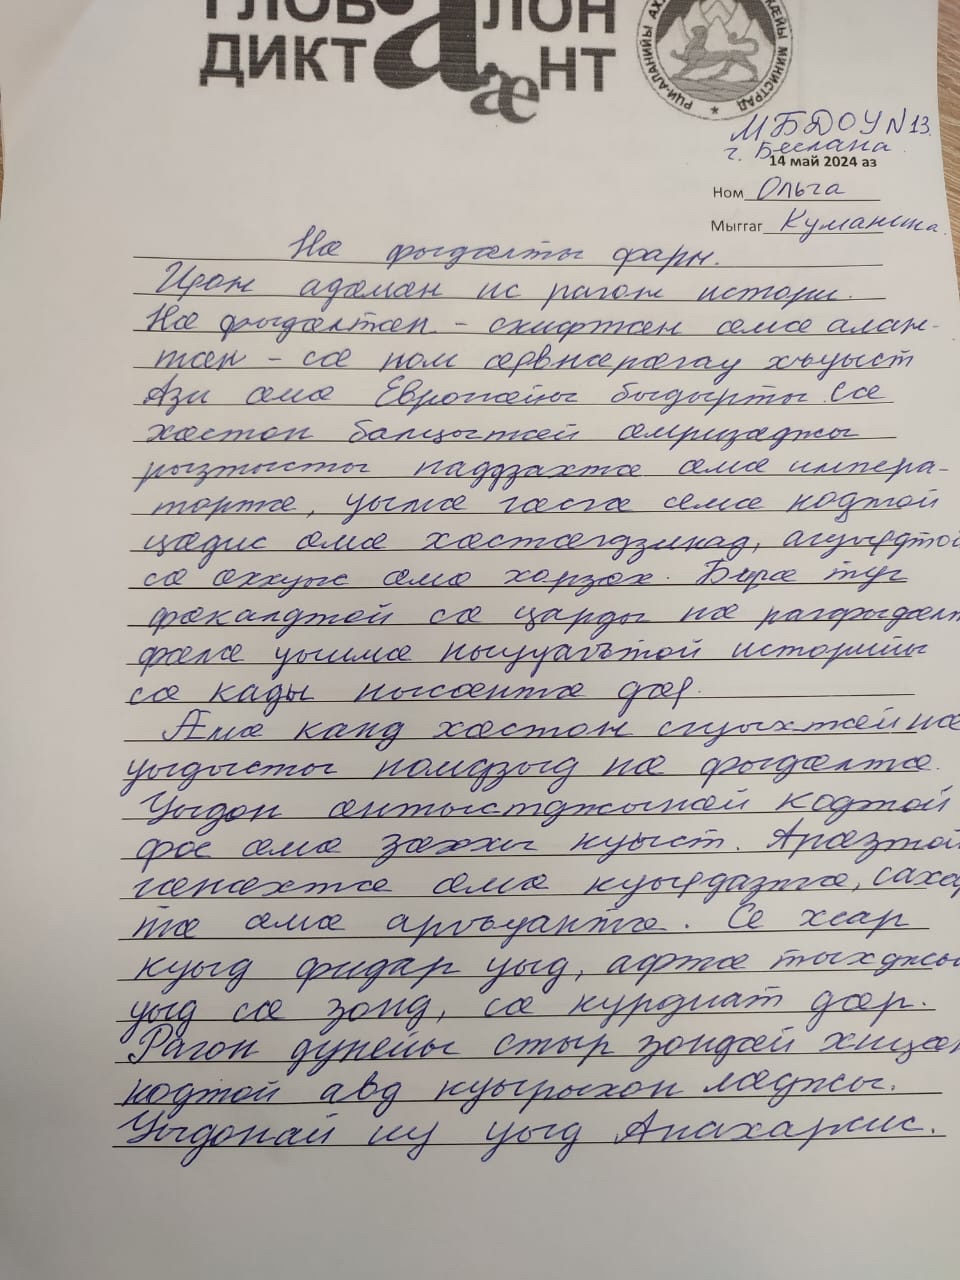 ГЛОБ АЛОН
ДИКТ АНТ
ææ
РЦИ-АЛАНИЙЫ АХ МИНИСТРАД
МБДОУ N 13.
г. Беслана
14 май 2024 аз
Ном Ольга
Мыггаг
Нæ фыдæлты фарн.
Ирон адæмæн ис рагон истори.
Нæ фыдæлтæн - скифтæн æмæ алан-
тæн - сæ ном æрвнæрæгау хъуыст
Ази æмæ Европæйы быдырты. Сæ
хæстон балцытæй æмризæджы
рызтысты паддзахтæ æмæ импера-
тортæ, уымæ гæсгæ семæ кодтой
цæдис æмæ хæстæгдзинад, агуырдтой
сæ æххуыс æмæ хорзæх. Бирæ туг
фæкалдтой сæ царды нæ рагфыдæлт
фæлæ уымæ ныууагътой историйы
сæ кады нысæнтæ дæр.
Æмæ канд хæстон сгуыхтæй нæ
уыдысты номдзыд нæ фыдæлтæ.
Уыдон æнтыстджынæй кодтой
фос æмæ зæххы куыст. Арæзтой
гæнæхтæ æмæ куырдазтæ, сахар
тæ æмæ аргъуантæ. Се хсар
куыд фидар уыд, афтæ тыхджы
уыд сæ зонд, сæ курдиат дæр.
Рагон дунейы стыр зондæй хицæн
кодтой авд куырыхон лæджы.
Уыдонæй иу уыд Анахарсис.